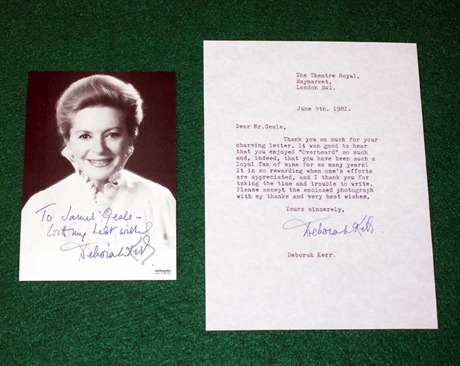 To James Geals -
With my best wishes
Deborah Kerr
The Theatre Royal,
Haymarket,
London SW1.
June 9th. 1981.
Dear Mr.Geals,
Thank you so much for your
charming letter. It was good to hear
that you enjoyed "Overheard" so much
and, indeed, that you have been such a
loyal fan of mine for so many years!
It is so rewarding when one's efforts
are appreciated, and I thank you for
taking the time and trouble to write.
Please accept the enclosed photograph
with my thanks and very best wishes,
Yours sincerely,
Deborah Kerr
Deborah Kerr.